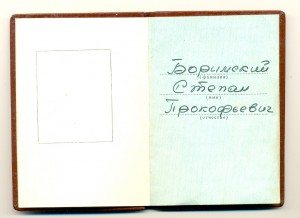 Боримский
(фамилия)
Степан
(имя)
Прокофьевич
(отчество)